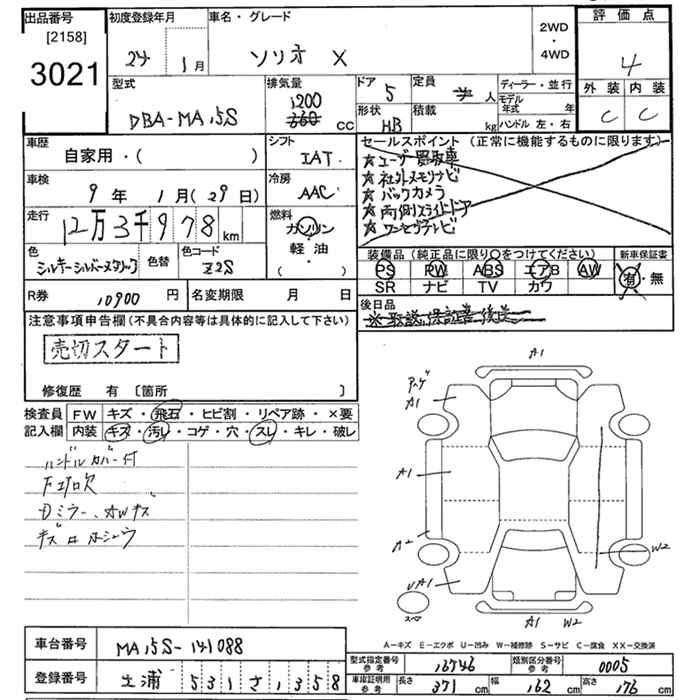 出品番号
[2158]
3021
初度登録年月
24 1月
車名・グレード
ソリオ X
2WD
・
4WD
評価点
4
外装 内装
C C
型式
DBA-MA15S
排気量
1200
660 cc
ドア 5
形状 HB
定員 人
積載 kg
ディーラー・並行
モデル年式 年
ハンドル 左・右
車歴
自家用・( )
シフト
IAT
セールスポイント (正常に機能するものに限ります)
★ユーザー買取車
★社外メモリナビ
★バックカメラ
★両側スライドドア
★ワンセグテレビ
車検
9年 1月(29日)
冷房
AAC
走行
12万3千978km
燃料
ガソリン
軽・油
( )
色
シルキーシルバーメタリック
色替
色コード
Z2S
装備品(純正品に限り○をつけてください)
PS PW ABS エアB AW
SR ナビ TV カワ
新車保証書
有・無
R券 10900円
名変期限 月 日
後日品
※取説、保証書後送
注意事項申告欄(不具合内容等は具体的に記入して下さい)
売切スタート
修復歴 有 〔箇所 〕
検査員
記入欄
FW キズ・飛石・ヒビ割・リペア跡・×要
内装 キズ・汚レ・コゲ・穴・スレ・キレ・破レ
ハンドルカバー付
下エグ欠
Dミラー、ホイルキズ
キズ口ホシュウ
A1
アンダ
A1
A1
A2
UA1
スペア
W2
A1 W2
A-キズ E-エクボ U-凹み W-補修跡 S-サビ C-腐食 XX-交換済
車台番号 MA15S-141088
登録番号 土浦 531さ1358
型式指定番号参考 16746
類別区分番号参考 0005
車庫証明用参考 長さ 371cm 幅 162cm 高さ 176cm